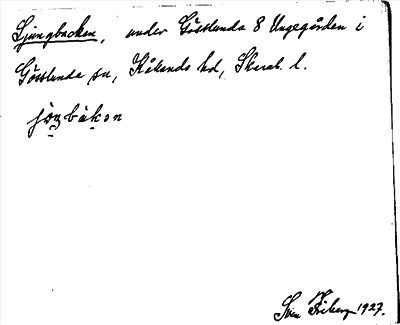 Ljungbacken, under Gösslunda 8 Ungegården i
Gösslunda sn, Kålands hd, Skarab. l.
jɵŋbakən
Sven Friberg 1927.